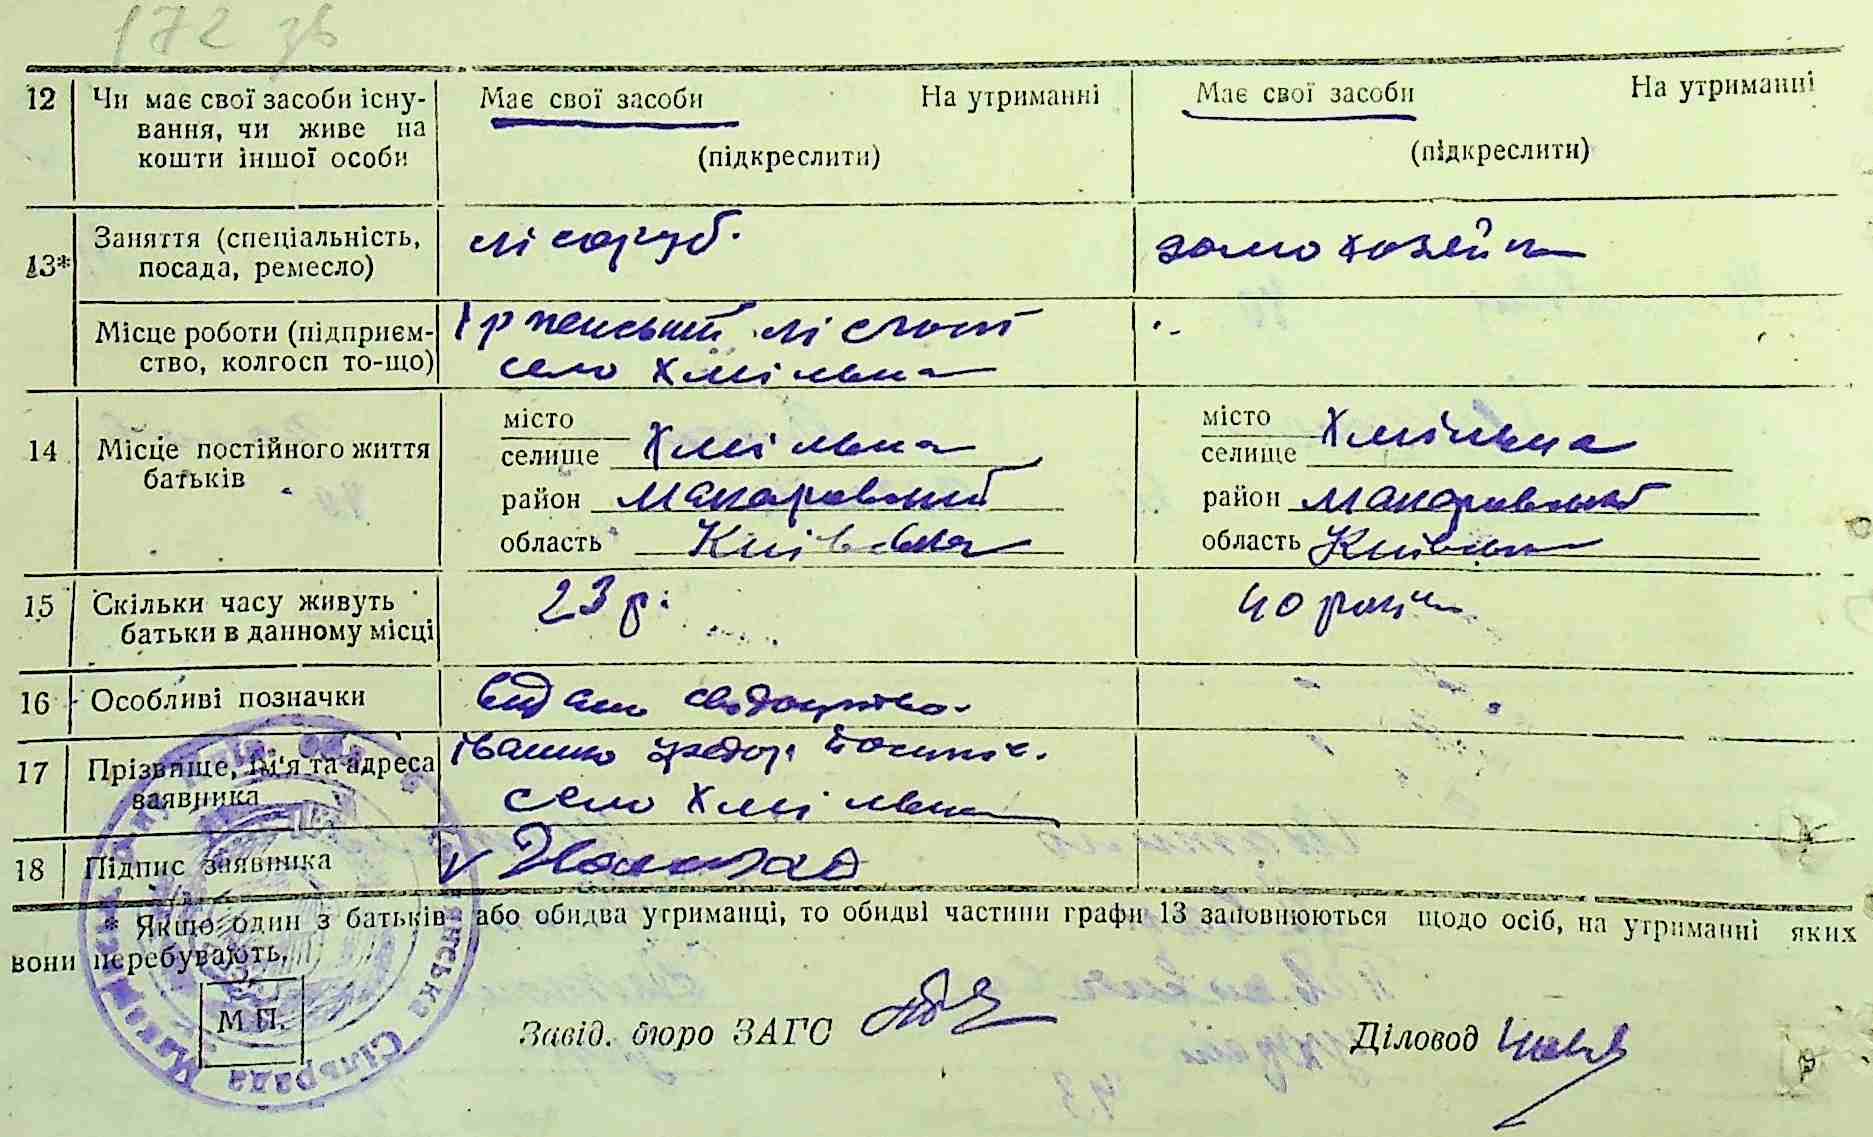 172 зв
12 Чи має свої засоби існу- Має свої засоби На утриманні Має свої засоби На утриманні
вання, чи живе на
кошти іншої особи (підкреслити) (підкреслити)
13* Заняття (спеціальність, лісоруб. домохозяйка
посада, ремесло)
Місце роботи (підприєм-
ство, колгосп то-що) село Хмільна
14 Місце постійного життя місто Хмільна місто Хмільна
батьків селище селище
район Макаровский район Макаровский
область Київська область Київська
15 Скільки часу живуть 23 р. 40 років
батьки в данному місці
16 Особливі позначки видано свідоцтво.
17 Прізвище, ім'я та адреса Івашко Федор
заявника село Хмільна
18 Підпис заявника
* Якщо один з батьків або обидва утриманці, то обидві частини графи 13 заповнюються щодо осіб, на утриманні яких
вони перебувають.
М П.
Завід. бюро ЗАГС Діловод